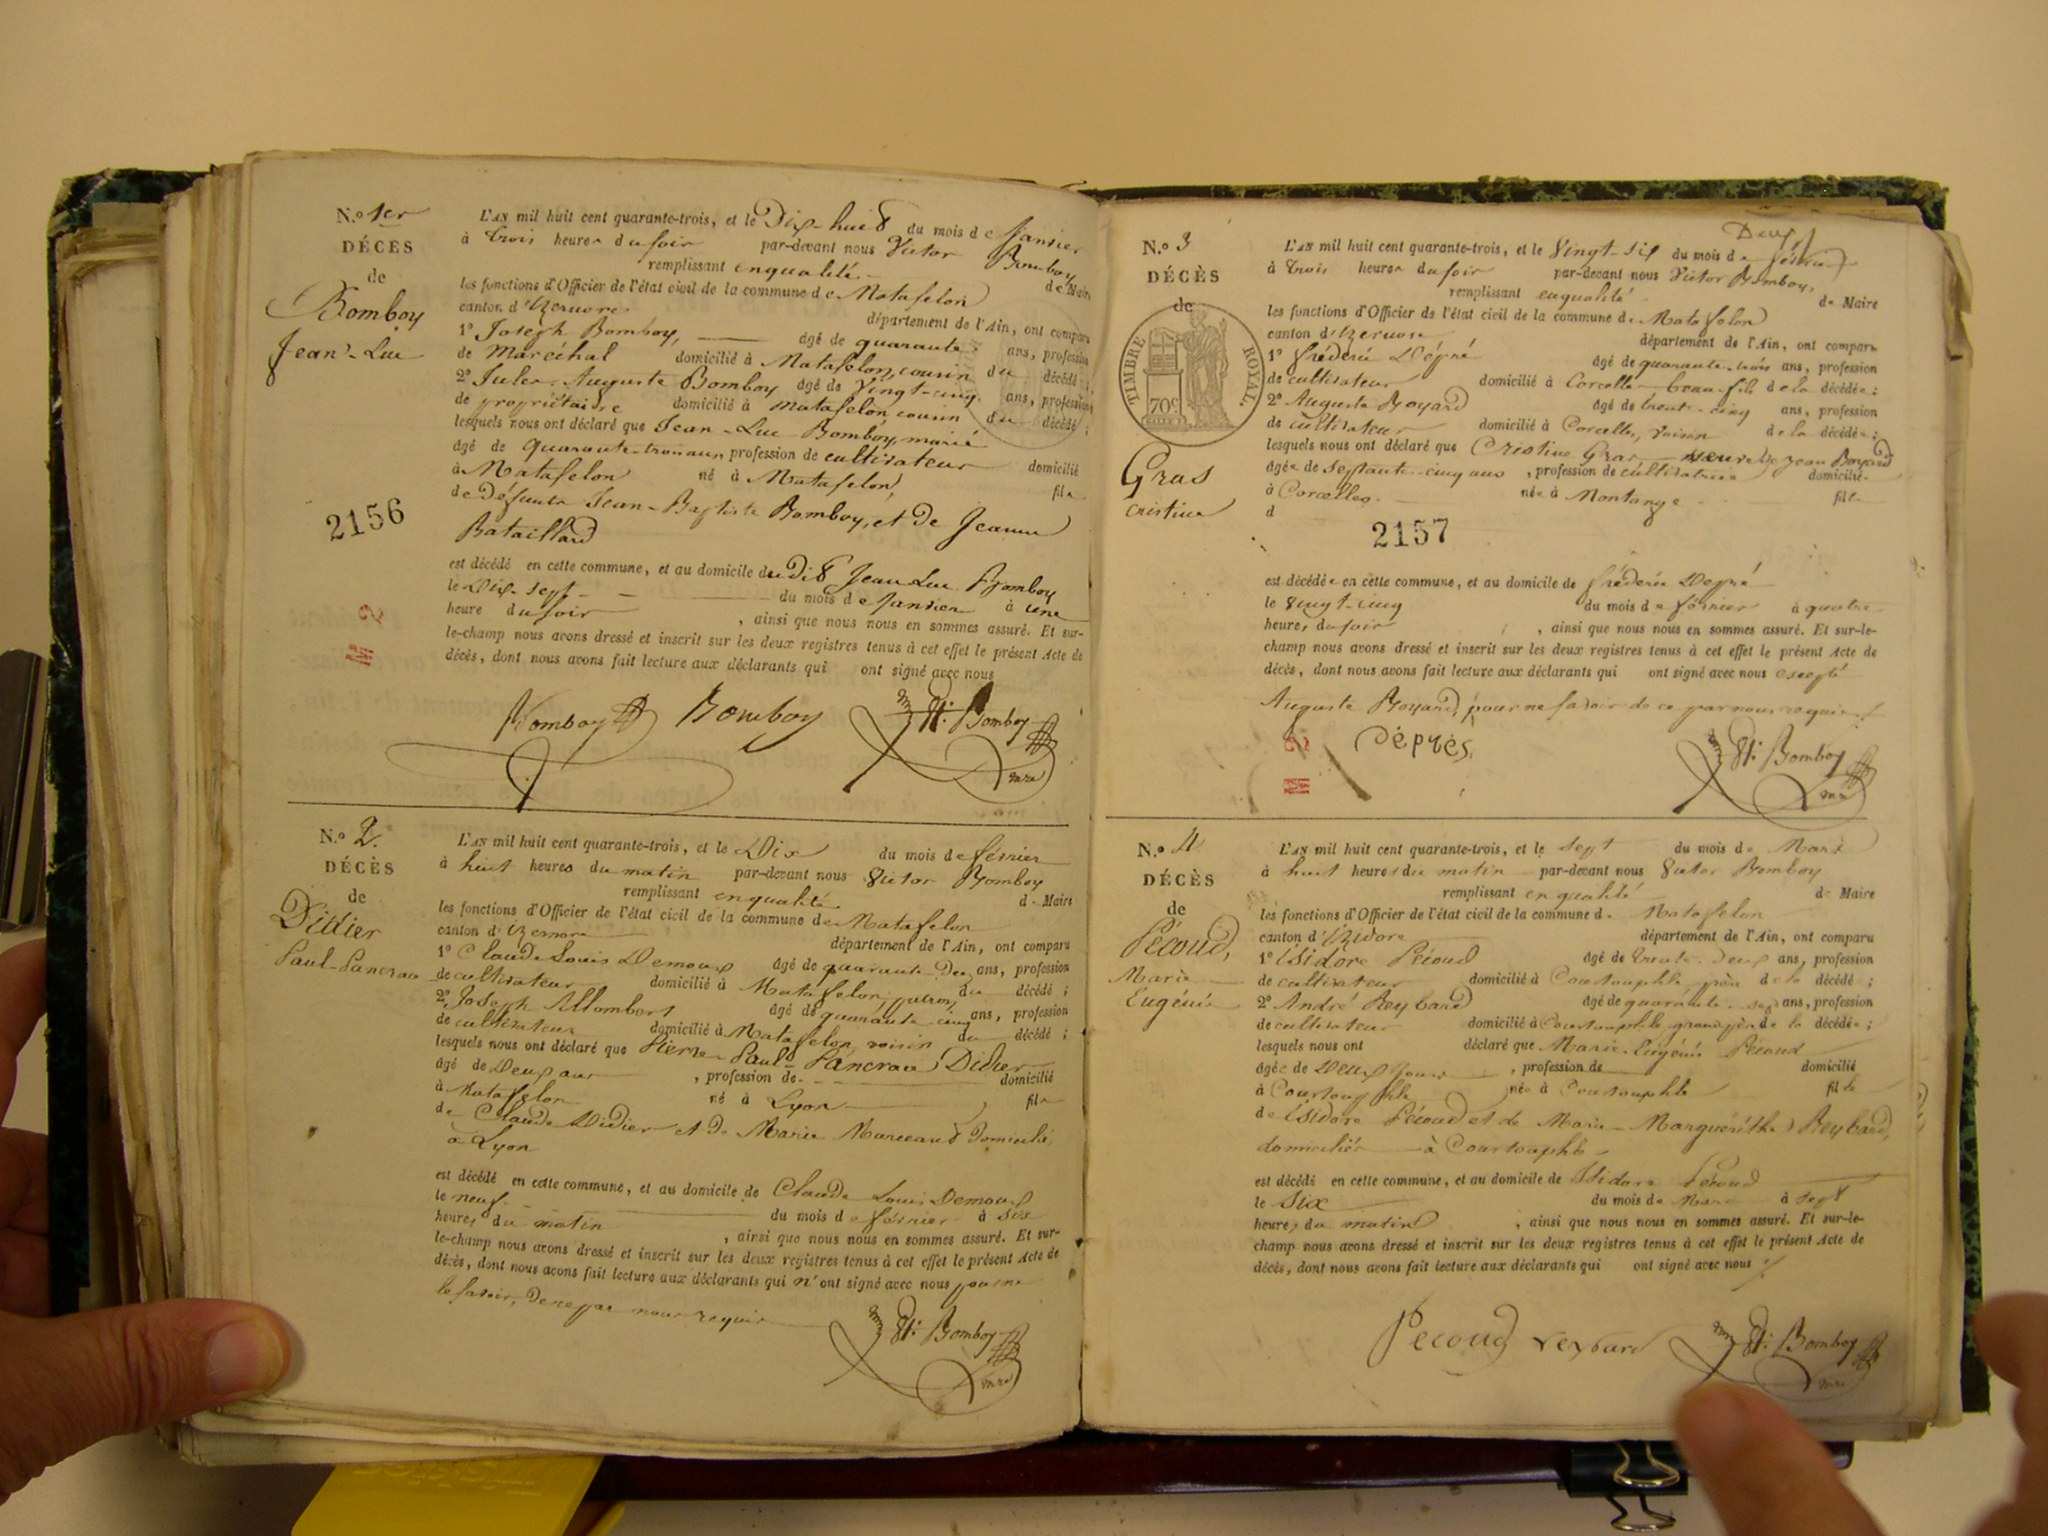 N.º 1er
DÉCÈS
de
Bomboy
Jean-Luc
2156
L'AN mil huit cent quarante-trois, et le Dix-huit du mois de Janvier
à trois heures du soir par-devant nous Victor Bomboy
remplissant en qualité de Maire
les fonctions d'Officier de l'état civil de la commune de Matafelon
canton d'Izernore département de l'Ain, ont comparu
1º Joseph Bomboy, âgé de quarante ans, profession
de Maréchal domicilié à Matafelon, cousin du décédé;
2º Jules-Auguste Bomboy âgé de Vingt-cinq ans, profession
de propriétaire domicilié à Matafelon cousin du décédé;
lesquels nous ont déclaré que Jean-Luc Bomboy, marié
âgé de quarante-trois ans profession de cultivateur domicilié
à Matafelon né à Matafelon, fils
de Défunts Jean-Baptiste Bomboy, et de Jeanne
Bataillard
est décédé en cette commune, et au domicile du dit Jean Luc Bomboy
le Dix-sept du mois de Janvier à une
heure du soir, ainsi que nous nous en sommes assuré. Et sur-
le-champ nous avons dressé et inscrit sur les deux registres tenus à cet effet le présent Acte de
décès, dont nous avons fait lecture aux déclarants qui ont signé avec nous
Bomboy Bomboy Vt: Bomboy
mre
N.º 2.
DÉCÈS
de
Didier
Paul-Pancrace
L'AN mil huit cent quarante-trois, et le Dix du mois de février
à huit heures du matin par-devant nous Victor Bomboy
remplissant en qualité de Maire
les fonctions d'Officier de l'état civil de la commune de Matafelon
canton d'Izernore département de l'Ain, ont comparu
1º Claude Louis Demoux âgé de quarante-Deux ans, profession
de cultivateur domicilié à Matafelon, du décédé;
2º Joseph Allombert âgé de quarante cinq ans, profession
de cultivateur domicilié à Matafelon, voisin du décédé;
lesquels nous ont déclaré que Pierre Paul-Pancrace Didier
âgé de Deux ans, profession de domicilié
à Matafelon né à Lyon, fils
de Claude Didier et de Marie domiciliés
à Lyon
est décédé en cette commune, et au domicile de Claude Louis Demoux
le neuf du mois de février à six
heures du matin, ainsi que nous nous en sommes assuré. Et sur-
le-champ nous avons dressé et inscrit sur les deux registres tenus à cet effet le présent Acte de
décès, dont nous avons fait lecture aux déclarants qui n'ont signé avec nous pour ne
le savoir, de ce par nous requis
Vt: Bomboy
mre
Deux
N.º 3
DÉCÈS
de
TIMBRE ROYAL.
70c
Gras
Cristine
L'AN mil huit cent quarante-trois, et le Vingt-six du mois de février
à trois heures du soir par-devant nous Victor Bomboy,
remplissant en qualité de Maire
les fonctions d'Officier de l'état civil de la commune de Matafelon
canton d'Izernore département de l'Ain, ont comparu
1º frédéric Dépré âgé de quarante-trois ans, profession
de cultivateur domicilié à Corcelle beau-fils de la décédée;
2º Auguste Boyard âgé de trente-cinq ans, profession
de cultivateur domicilié à Corcelles, voisin de la décédée;
lesquels nous ont déclaré que Cristine Gras veuve de Jean Boyard
âgée de septante-cinq ans, profession de cultivatrice domiciliée
à Corcelles née à Montange fille
d
2157
est décédée en cette commune, et au domicile de frédéric Depré
le vingt-cinq du mois de février à quatre
heures du soir, ainsi que nous nous en sommes assuré. Et sur-le-
champ nous avons dressé et inscrit sur les deux registres tenus à cet effet le présent Acte de
décès, dont nous avons fait lecture aux déclarants qui ont signé avec nous excepté
Auguste Boyard, pour ne savoir de ce par nous requis
Déprès Vt: Bomboy
mre
N.º 4
DÉCÈS
de
Pécoud,
Marie
Eugénie
L'AN mil huit cent quarante-trois, et le sept du mois de Mars
à huit heures du matin par-devant nous Victor Bomboy
remplissant en qualité de Maire
les fonctions d'Officier de l'état civil de la commune de Matafelon
canton d' département de l'Ain, ont comparu
1º Isidore Pécoud âgé de trente-deux ans, profession
de cultivateur domicilié à Courtouphle, père de la décédée;
2º André Reybard âgé de quarante-sept ans, profession
de cultivateur domicilié à Courtouphle grand père de la décédée;
lesquels nous ont déclaré que Marie-Eugénie Pécoud
âgée de Deux jours, profession de domicilié
à Courtouphle née à Courtouphle fille
de Isidore Pécoud et de Marie-Marguerithe Reybard,
domiciliés à Courtouphle
est décédé en cette commune, et au domicile de Isidore Pécoud
le Six du mois de Mars à sept
heures du matin, ainsi que nous nous en sommes assuré. Et sur-le-
champ nous avons dressé et inscrit sur les deux registres tenus à cet effet le présent Acte de
décès, dont nous avons fait lecture aux déclarants qui ont signé avec nous
Pecoud Reybard Vt: Bomboy
mre